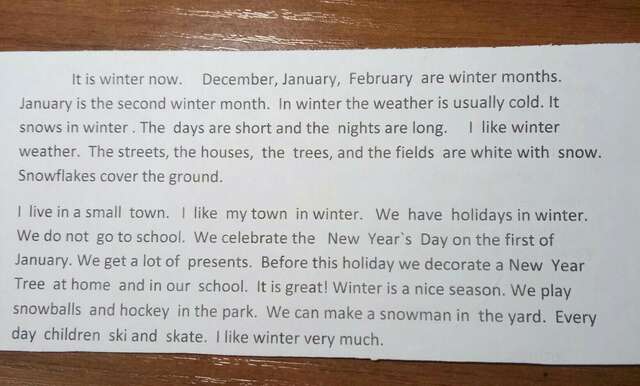 It is winter now. December, January, February are winter months.
January is the second winter month. In winter the weather is usually cold. It
snows in winter . The days are short and the nights are long. I like winter
weather. The streets, the houses, the trees, and the fields are white with snow.
Snowflakes cover the ground.
I live in a small town. I like my town in winter. We have holidays in winter.
We do not go to school. We celebrate the New Year`s Day on the first of
January. We get a lot of presents. Before this holiday we decorate a New Year
Tree at home and in our school. It is great! Winter is a nice season. We play
snowballs and hockey in the park. We can make a snowman in the yard. Every
day children ski and skate. I like winter very much.